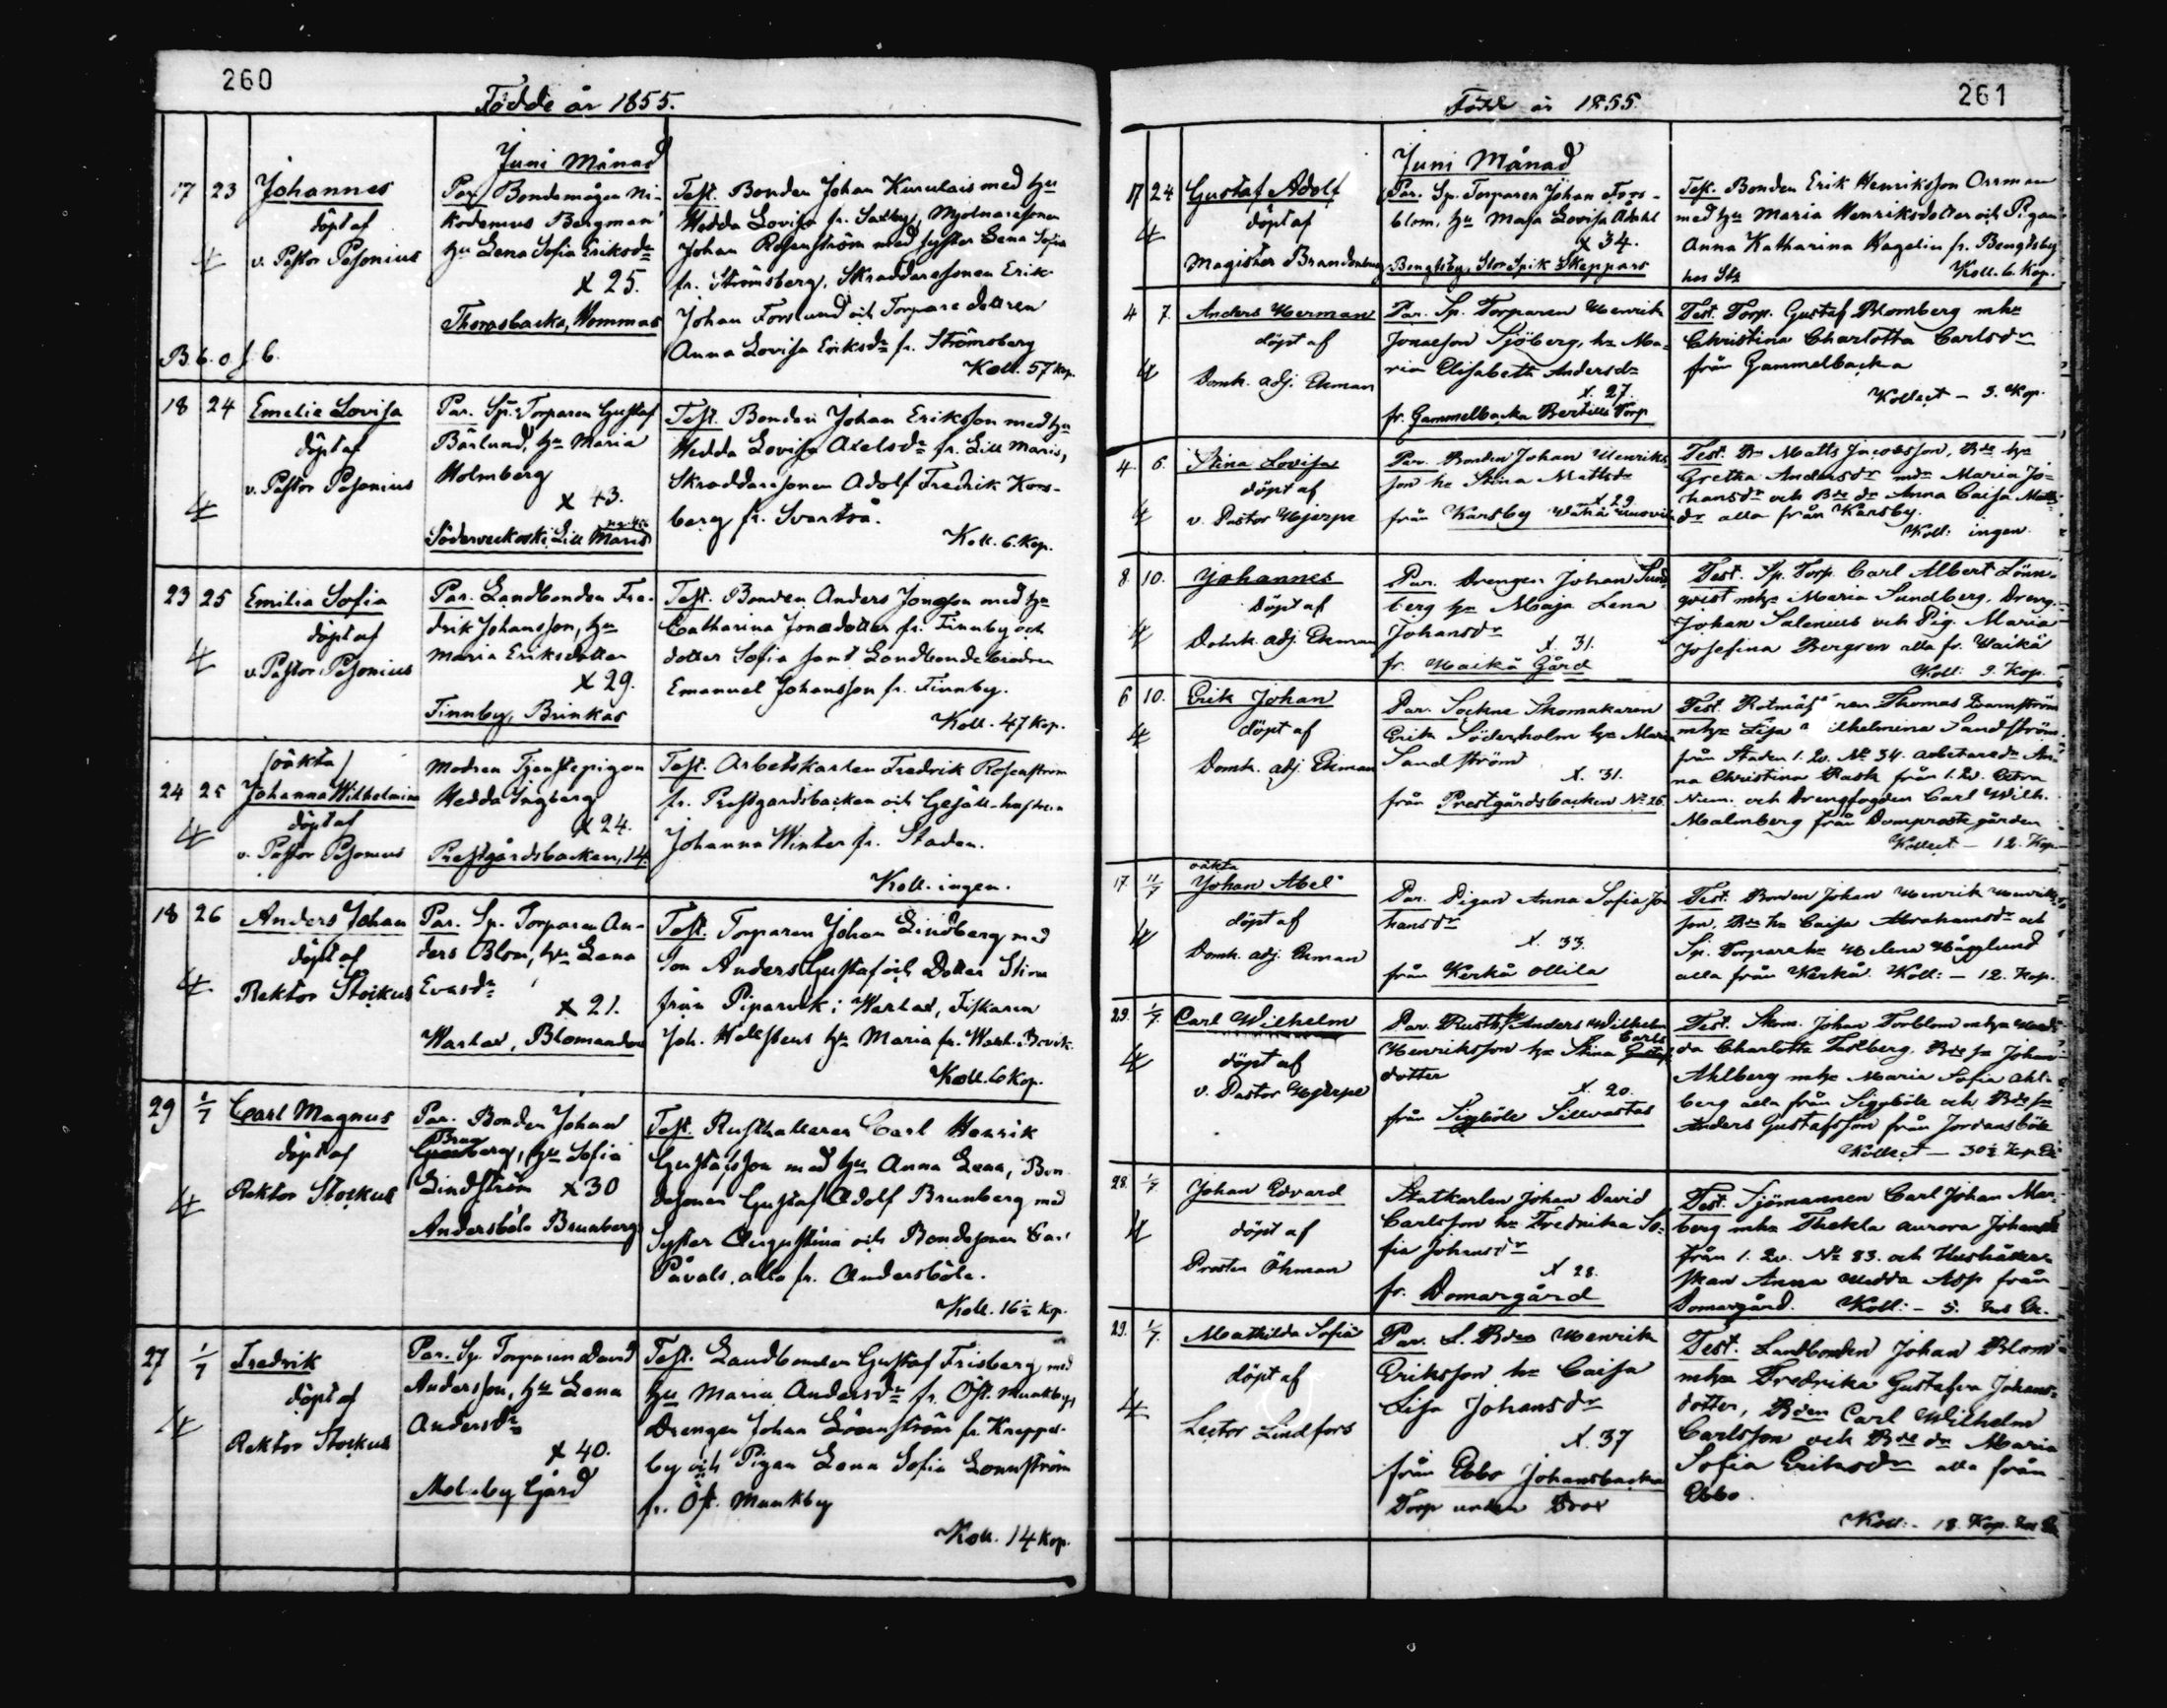 260
Födde år 1855.
Juni Månad
17 23 Johannes
döpt af
v. Pastor Pesonius
B. 6. o f. 6.
Par. Bondemågen Ni-
kodemus Bergman
hu Lena Sofia Eriksdr
x 25.
Thorasbacka, Hommas
Test. Bonden Johan med hu
Hedda Lovisa fr. Saxby, Mjolnaresonen
Johan Rosenström med syster Lena Sofia
fr. Strömsberg, Skraddaresonen Erik
Johan Forslund och Torpare dottren
Anna Lovisa Eriksdr fr. Strömsberg
Koll. 57 kop.
18 24 Emelie Lovisa
döpt af
v. Pastor Pesonius
Par. Sp. Torparen Gustaf
Bärlund, hu Maria
Holmberg
x 43.
Söderveckoski Lill Maris
Test. Bonden Johan Eriksson med hu
Hedda Lovisa Axelsdr fr. Lill Maris,
Skraddaresonen Adolf Fredrik Kors-
berg fr. Svartså.
Koll. 6. Kop.
23 25 Emilia Sofia
döpt af
v. Pastor Pesonius
Par. Landbonden Fre-
drik Johansson, hu
Maria Eriksdotter
x 29.
Finnby, Brinkas
Test. Bonden Anders Jonasson med hu
Catharina Jonasdotter fr. Finnby och
dotter Sofia samt Landbondebrodren
Emanuel Johansson fr. Finnby.
Koll. 47 Kop.
(oäkta)
24 25 Johanna Wilhelmina
döpt af
v. Pastor Pesonius
Modren Tjenstepigan
Hedda Ingberg
x 24.
Prestgårdsbacken, 14.
Test. Arbetskarlen Fredrik Rosenström
fr. Prestgardsbacken och Gesäll-hustrun
Johanna Winter fr. Staden.
Koll. ingen.
18 26 Anders Johan
döpt af
Rektor Stockus
Par. Sp. Torparen An-
ders Blom, hu Lena
Evasdr
x 21.
Warlax, Blomandon
Test. Torparen Johan Lindberg med
son Anders Gustaf och Dotter Stina
från Piparvik i Warlax, Fiskaren
Joh. Hellstens hu Maria fr. Warl. Brvik.
Koll. 6 Kop.
29 1/7 Carl Magnus
döpt af
Rektor Stockus
Par. Bonden Johan
Brunberg, hu Sofia
Lindström x 30
Andersböle Brunbergs
Test. Rusthallaren Carl Henrik
Gustafsson med hu Anna Lena, Bon-
desonen Gustaf Adolf Brunberg med
syster Augustina och Bondesonen Carl
Påvals, alla fr. Andersböle.
Koll. 16½ kop.
27 1/7 Fredrik
döpt af
Rektor Stockus
Par. Sp. Torparen David
Andersson, hu Lena
Andersdr
x 40.
Molnby Gård
Test. Landbonden Gustaf Frisberg med
hu Maria Andersdr fr. Öst. Munkby,
Drengen Johan Lönnström fr. Kreppel-
by och Pigan Lena Sofia Lönnström
fr. Öst. Munkby
Koll. 14 kop.
261
Födde år 1855.
Juni Månad
17 24 Gustaf Adolf
döpt af
Magister Brandenburg
Par. Sp. Torparen Johan Fors-
blom, hu Maja Lovisa Ådahl
x 34.
Bengtsby, Stor Spik Skeppars
Test. Bonden Erik Henriksson Orrman
med hu Maria Henriksdotter och Pigan
Anna Katharina Hagelin fr. Bengtsby
Koll. 6. Kop.
4 7. Anders Herman
döpt af
Domk. adj. Ekman
Par. Sp. Torparen Henrik
Jonasson Sjöberg, hu Ma-
ria Elisabeth Andersdr
x. 27.
fr. Gammelbacka Bertills Torp
Test. Torp. Gustaf Blomberg mhu
Christina Charlotta Carlsdr
från Gammelbacka
Kollect – 3. Kop.
4. 6. Stina Lovisa
döpt af
v. Pastor Hjerpe
Par. Bonden Johan Henriks-
son hu Stina Mattsdr
x 29
från Karsby
Test. Bn Matts Jacobsson, Bde hu
Gretha Andersdr mdr Maria Jo-
hansdr och Bde dr Anna Caisa Matts-
dr alla från Karsby.
Koll: ingen.
8. 10. Johannes
döpt af
Domk. adj. Ekman
Par. Drengen Johan Sund-
berg hu Maja Lena
Johansdr
x. 31.
fr. Waikå Gård
Test. Sp. Torp. Carl Albert Lönn-
qvist mhu Maria Sundberg, Dreng.
Johan Salenius och Pig. Maria
Josefina Bergren alla fr. Waikå
Koll: 9. Kop.
6 10. Erik Johan
döpt af
Domk. adj. Ekman
Par. Sockne Skomakaren
Erik Söderholm hu Maria
Sandström
x. 31.
från Prestgårdsbacken No 26.
Test. Rotmäst ren Thomas
mhu Lisa Wilhelmina Sandström
från Staden 1. Qv. No 34. Arbetaredr An-
na Christina Rask från 1. Qv. Extra
Num. och Drengfogden Carl Wilh.
Malmberg från Domprostgården
Kollect – 12. Kop.
oäkta
17. 11/7 Johan Abel
döpt af
Domk. adj. Ekman
Par. Pigan Anna Sofia Jo-
hansdr
x. 33.
från Kerkå Ollila
Test. Bonden Johan Henrik Henriks-
son, Bde hu Caisa Abrahamsdr och
Sp. Torpare hu Helena Hägglund
alla från Kerkå. Koll: – 12. Kop.
29. 1/7. Carl Wilhelm
döpt af
v. Pastor Hjerpe
Par. Rusth. Anders Wilhelm
Henriksson hu Stina Carls
dotter
x. 20.
från Siggböle Sillvastas
Test. Skom. Johan Forblom mhu Hed-
da Charlotta Fastberg, Bde sn Johan
Ahlberg mhu Maria Sofia Ahl-
berg alla från Siggböle och Bde sn
Anders Gustafsson från Jordansböle
Kollect – 30½ Kop.
28. 1/7. Johan Edvard
döpt af
Prosten Öhman
Statkarlen Johan David
Carlsson hu Fredrika So-
fia Johansdr
x 28.
fr. Domargård
Test. Sjömannen Carl Johan Mar-
berg mhu Thekla Aurora Johansdr
från 1. Qv. No 83. och Hushåller-
skan Anna Hedda Asp från
Domargård. Koll: – 5.
29. 1/7. Mathilda Sofia
döpt af
Lector Lindfors
Par. L. Bden Henrik
Eriksson hu Caisa
Lisa Johansdr
x. 37
från Ebbo Johansbacka
Torp under
Test. Landbonden Johan Blom
mhu Fredrika Gustafva Johans-
dotter, Bden Carl Wilhelm
Carlsson och Bde dr Maria
Sofia Eriksdr alla från
Ebbo.
Koll: – 18. Kop.